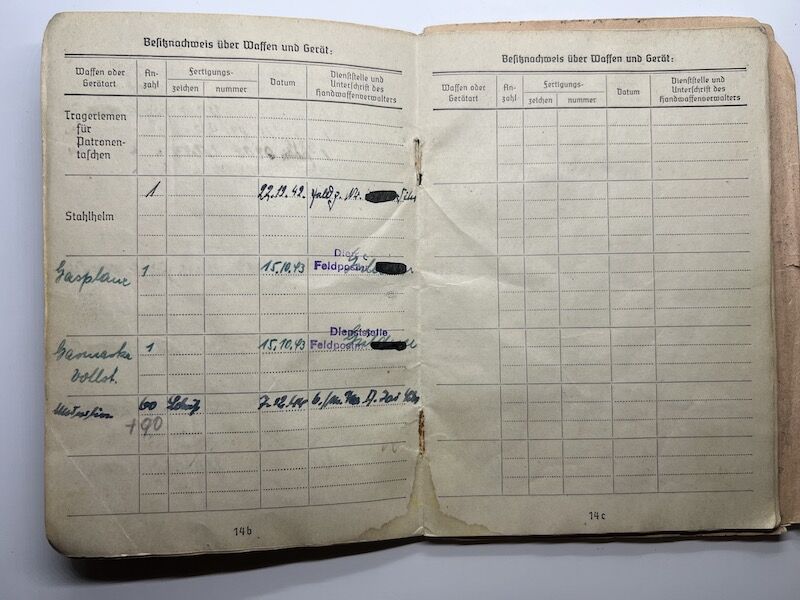 Besitznachweis über Waffen und Gerät:
Waffen oder Geräteart
An-zahl
Fertigungs-
zeichen
nummer
Datum
Dienststelle und Unterschrift des Handwaffenverwalters
Trageriemen
für
Patronen-
taschen
1
Stahlhelm
Gasplane 1 15.10.43
Feldpost
Gasmaske 1 15.10.43
Dienststelle
Feldpost
vollst.
60
+90
14b
Besitznachweis über Waffen und Gerät:
Waffen oder Geräteart
An-zahl
Fertigungs-
zeichen
nummer
Datum
Dienststelle und Unterschrift des Handwaffenverwalters
14c